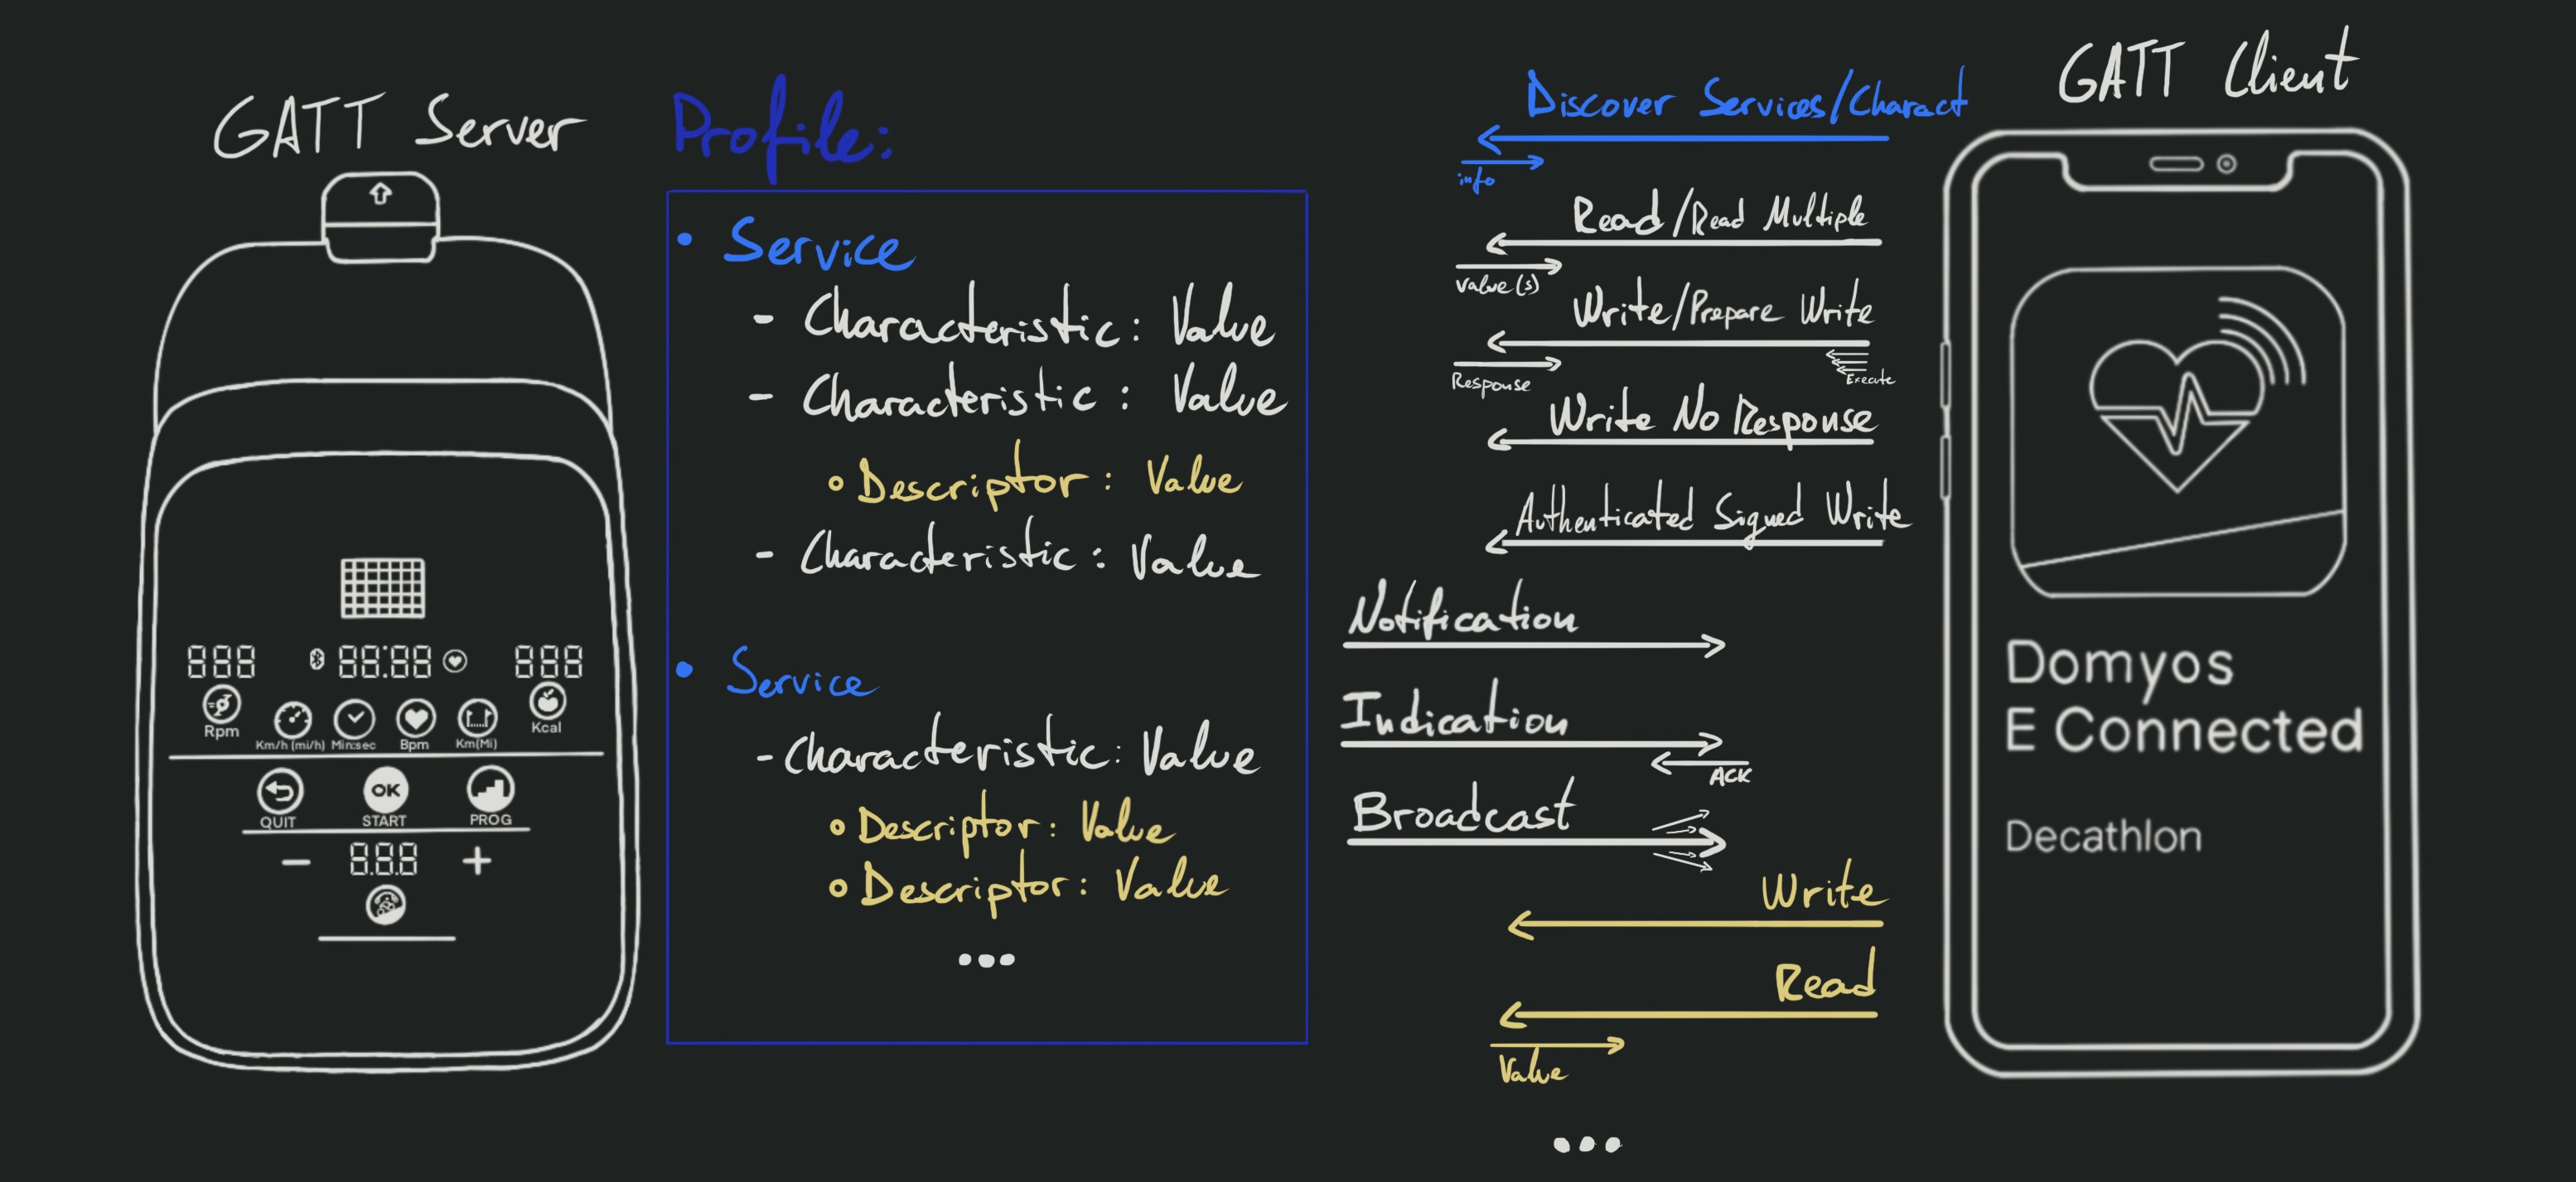 GATT Server
888
88:88
888
Rpm
Km/h (mi/h)
Min:sec
Bpm
Km(Mi)
Kcal
QUIT
OK
START
PROG
− 8.8.8 +
Profile:
• Service
- Characteristic: Value
- Characteristic: Value
○ Descriptor: Value
- Characteristic: Value
• Service
- Characteristic: Value
○ Descriptor: Value
○ Descriptor: Value
...
Discover Services/Charact
info
Read/Read Multiple
Value(s)
Write/Prepare Write
Response
Execute
Write No Response
Authenticated Signed Write
Notification
Indication
ACK
Broadcast
Write
Read
Value
...
GATT Client
Domyos
E Connected
Decathlon